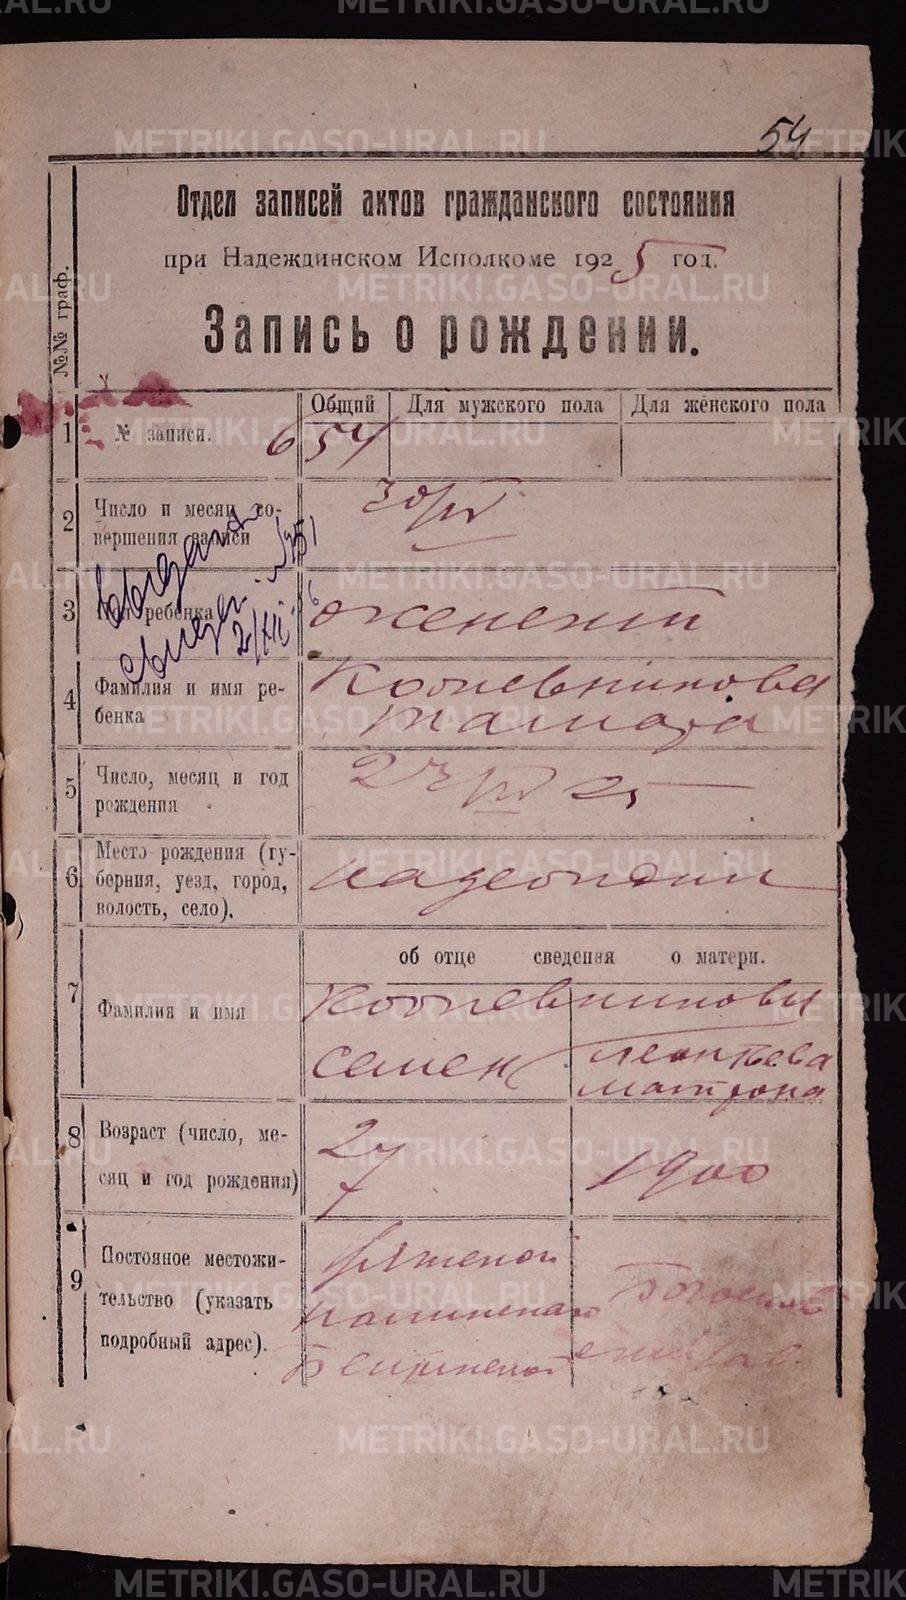 54
Отдел записей актов гражданского состояния
при Надеждинском Исполкоме 1925 год.
Запись о рождении.
№№ граф.
Общий Для мужского пола Для женского пола
1 № записи. 654
2 Число и месяц со-
вершения записи 30/IV
3 Пол ребенка женский
Выдана
свидет
4 Фамилия и имя ре-
бенка Кожевникова
Тамара
5 Число, месяц и год
рождения 23/IV 25
6 Место рождения (гу-
берния, уезд, город,
волость, село). Надеждин
об отце сведения о матери.
7 Фамилия и имя
Кожевниковы
Семен Леонтьева
Матрона
8 Возраст (число, ме-
сяц и год рождения) 27 1900
9 Постояное местожи-
тельство (указать
подробный адрес).
METRIKI.GASO-URAL.RU